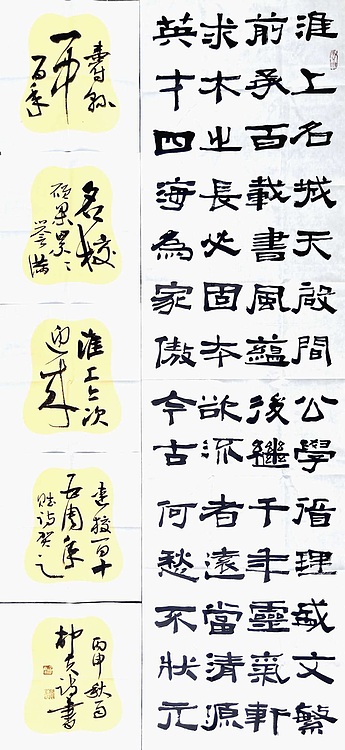 淮上名城天啟間公學循理彧文繁
前承百載書風蘊後繼千年靈氣軒
求木之長必固本欲流者遠當清源
英才四海為家傲今古何愁不狀元
壽縣
一中
百年
名校
碩果累々
譽滿
淮上今次
迎來
建校一百十
五周年
賦詩賀之
丙申秋月
詩書